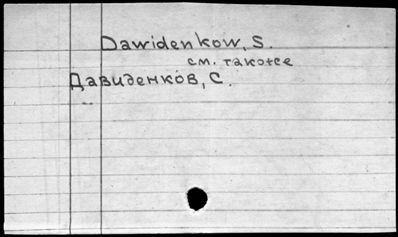 Dawidenkow, S.
см. также
Давиденков, С.